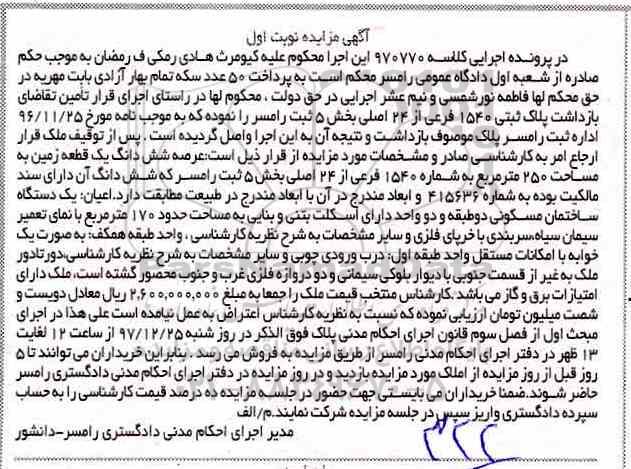 آگهی مزایده نوبت اول
در پرونده اجرایی کلاسه ۹۷۰۷۷۰ این اجرا محکوم علیه کیومرث هادی رمکی ف رمضان به موجب حکم
صادره از شعبه اول دادگاه عمومی رامسر محکم است به پرداخت ۵۰ عدد سکه تمام بهار آزادی بابت مهریه در
حق محکم لها فاطمه نورشمسی و نیم عشر اجرایی در حق دولت ، محکوم لها در راستای اجرای قرار تأمین تقاضای
بازداشت پلاک ثبتی ۱۵۴۰ فرعی از ۲۴ اصلی بخش ۵ ثبت رامسر را نموده که به موجب نامه مورخ ۹۶/۱۱/۲۵
اداره ثبت رامسر پلاک موصوف بازداشت و نتیجه آن به این اجرا واصل گردیده است . پس از توقیف ملک قرار
ارجاع امر به کارشناسی صادر و مشخصات مورد مزایده از قرار ذیل است:عرصه شش دانگ یک قطعه زمین به
مساحت ۲۵۰ مترمربع به شماره ۱۵۴۰ فرعی از ۲۴ اصلی بخش ۵ ثبت رامسر که شش دانگ آن دارای سند
مالکیت بوده به شماره ۴۱۵۶۳۶ و ابعاد مندرج در آن با ابعاد مندرج در طبیعت مطابقت دارد.اعیان: یک دستگاه
ساختمان مسکونی دوطبقه و دو واحد دارای اسکلت بتنی و بنایی به مساحت حدود ۱۷۰ مترمربع با نمای تعمیر
سیمان سیاه،سربندی با خرپای فلزی و سایر مشخصات به شرح نظریه کارشناسی ، واحد طبقه همکف: به صورت یک
خوابه با امکانات مستقل واحد طبقه اول: درب ورودی چوبی و سایر مشخصات به شرح نظریه کارشناسی،دورتادور
ملک به غیر از قسمت جنوبی با دیوار بلوکی سیمانی و دو دروازه فلزی غرب و جنوب محصور گشته است، ملک دارای
امتیازات برق و گاز می باشد .کارشناس منتخب قیمت ملک را جمعا به مبلغ ۲,۶۰۰,۰۰۰,۰۰۰ ریال معادل دویست و
شصت میلیون تومان ارزیابی نموده که نسبت به نظریه کارشناس اعتراض به عمل نیامده است علی هذا در اجرای
مبحث اول از فصل سوم قانون اجرای احکام مدنی پلاک فوق الذکر در روز شنبه ۹۷/۱۲/۲۵ از ساعت ۱۲ لغایت
۱۳ ظهر در دفتر اجرای احکام مدنی رامسر از طریق مزایده به فروش می رسد . بنابراین خریداران می توانند تا ۵
روز قبل از روز مزایده از املاک مورد مزایده بازدید و در روز مزایده در دفتر اجرای احکام مدنی دادگستری رامسر
حاضر شوند.ضمنا خریداران می بایستی جهت حضور در جلسه مزایده ده درصد قیمت کارشناسی را به حساب
سپرده دادگستری واریز سپس در جلسه مزایده شرکت نمایند.م/الف
مدیر اجرای احکام مدنی دادگستری رامسر-دانشور